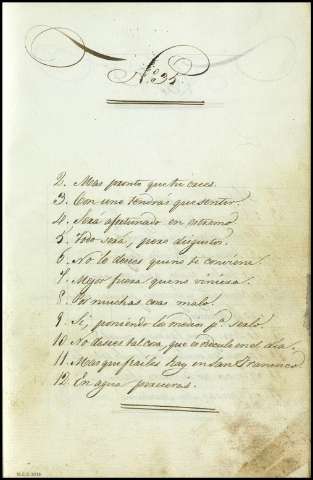 Nº 35
2. Mas pronto que tu crees.
3. Con uno tendras que sentir.
4. Será afortunado en estremo
5. Todo será, pero disgustos.
6. No lo desees que no te conviene.
7. Mejor fuera que no viniera.
8. Por muchas cosas malo.
9. Si, poniendo los medios pª serlo.
10. No desees tal cosa, que es ridicula en el dia.
11. Mas que frailes hay en San Francisco
12. En agua pararás.